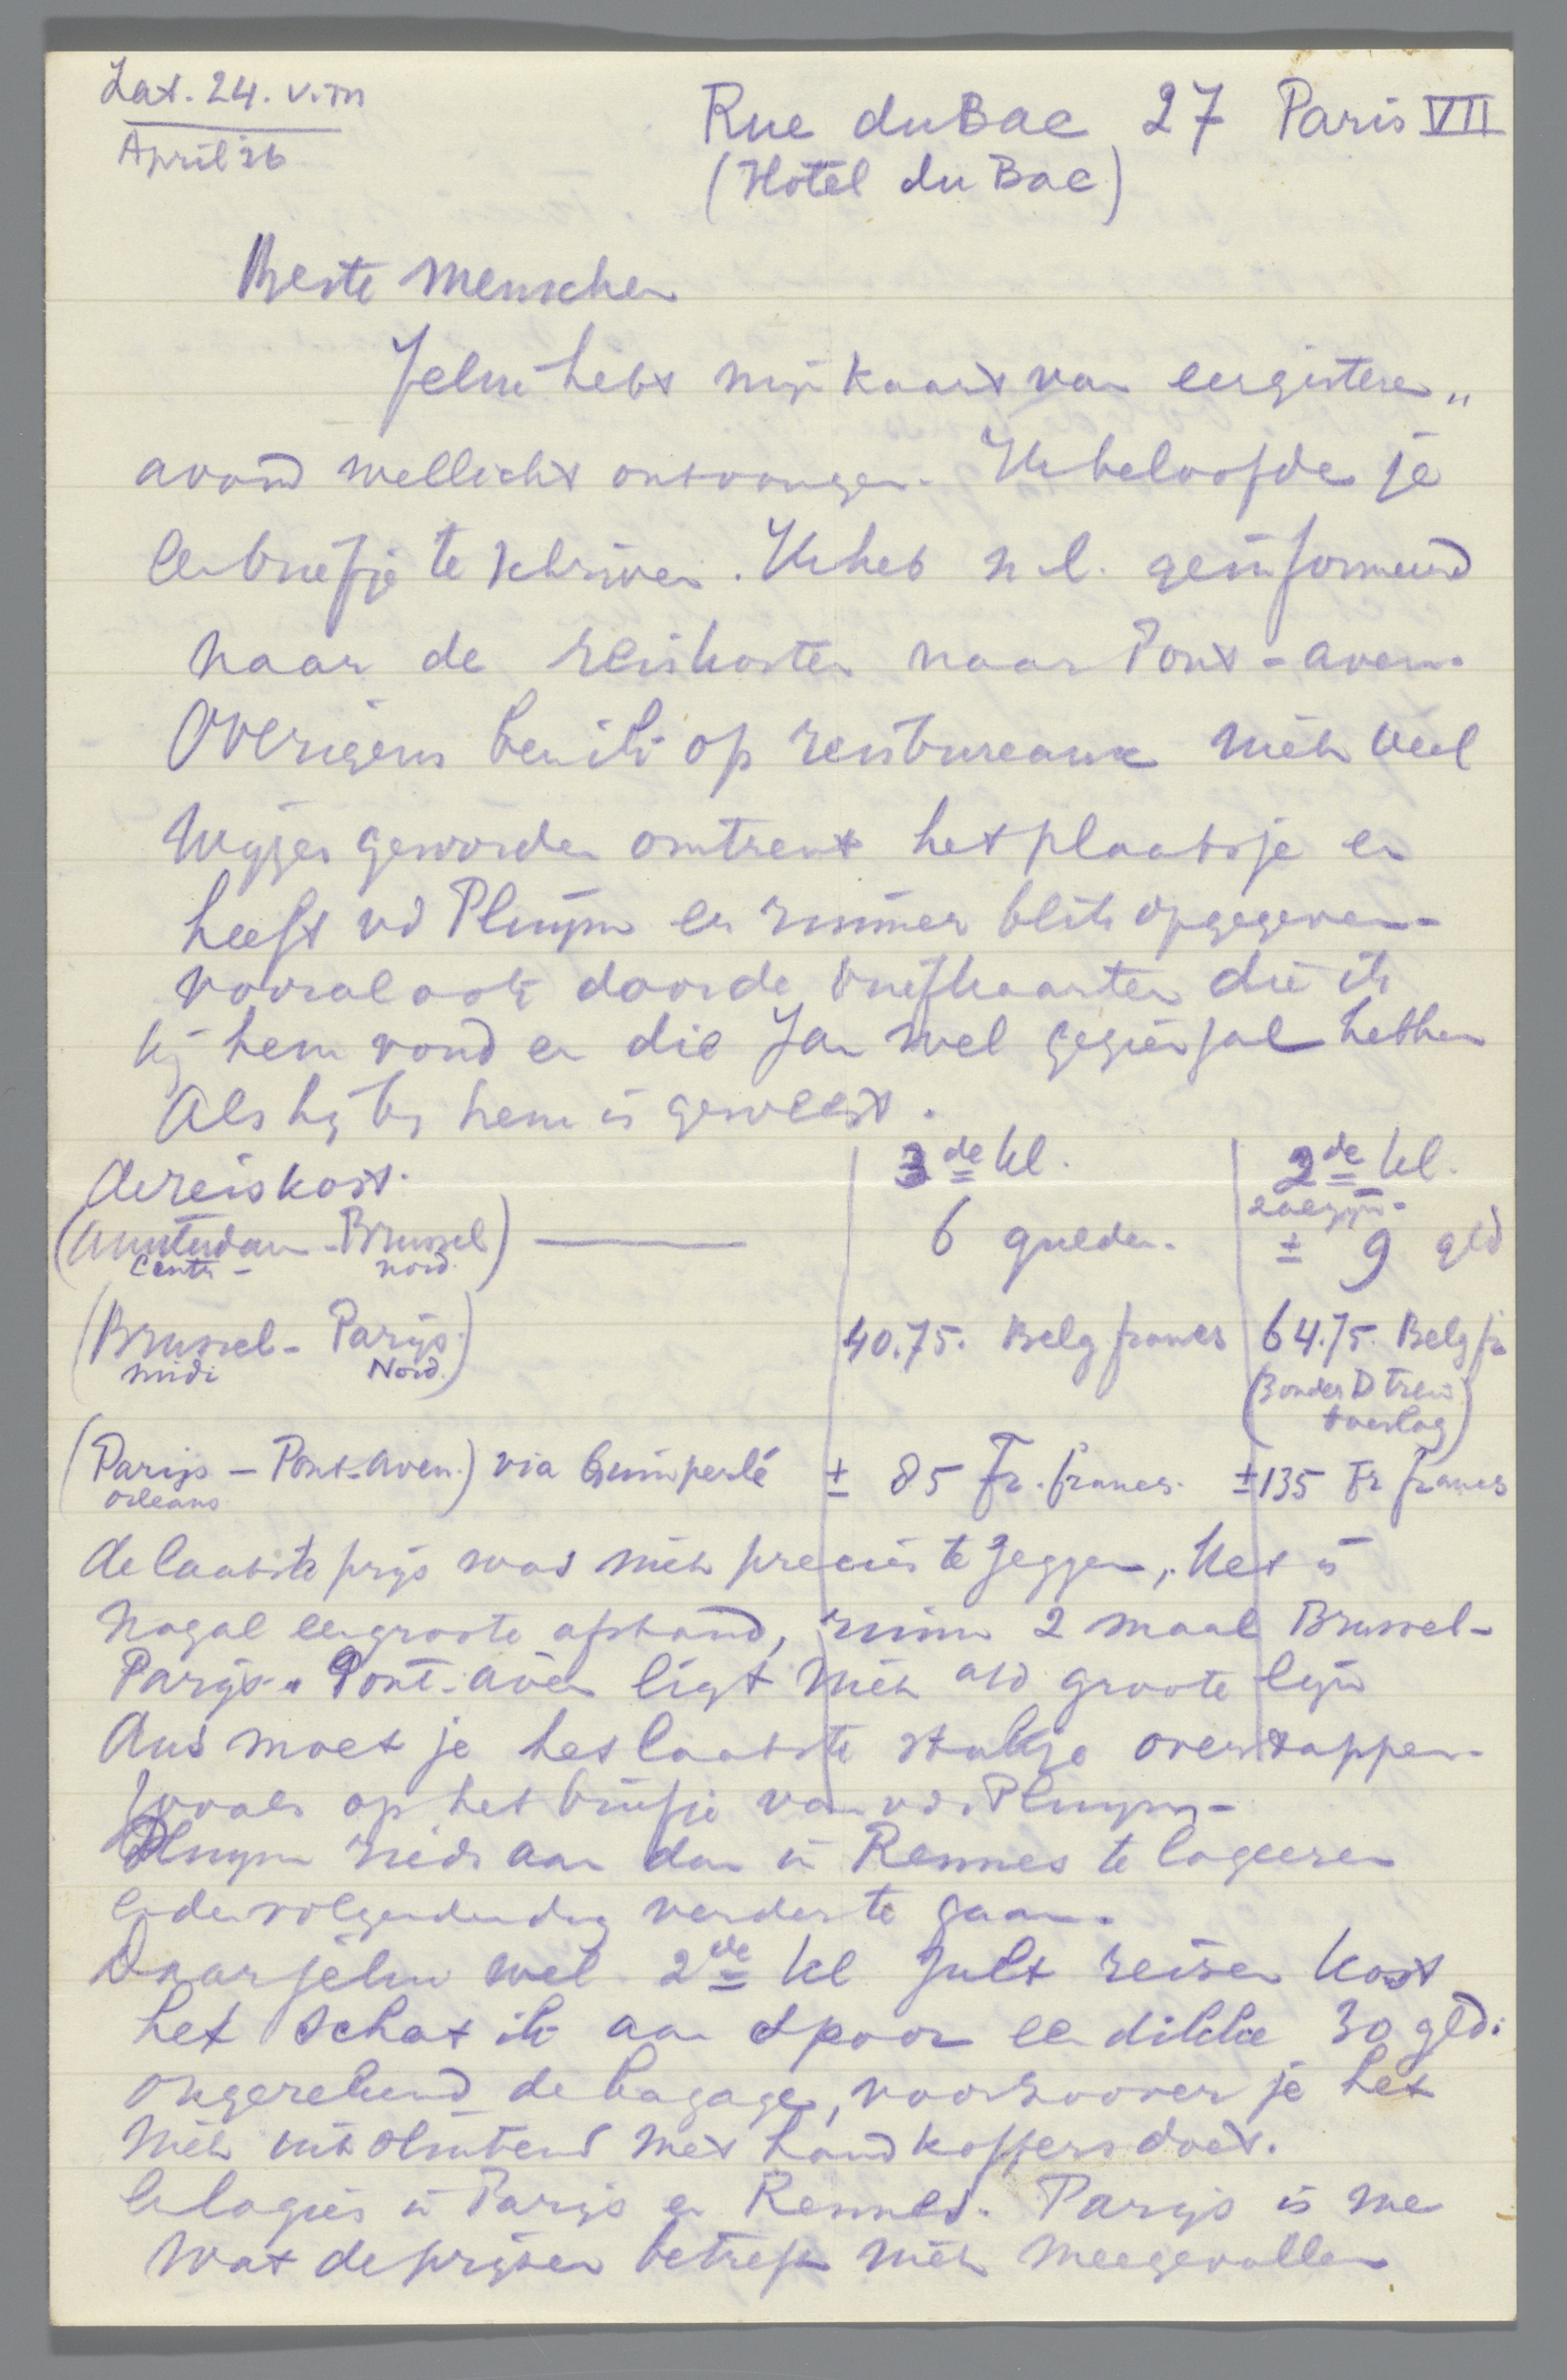 Zat. 24. v.m
April 26
Rue du Bac 27 Paris VII
(Hotel du Bac)
Beste menschen
Jelui hebt mijn kaart van eergisteren„
avond wellicht ontvangen. Ik beloofde je
een briefje te schrijven. Ik heb n.l. geïnformeerd
naar de reiskosten naar Pont-aven.
Overigens ben ik op reisbureaux niet veel
wijzer geworden omtrent het plaatsje en
heeft vd Pluijm een ruimer blik opgegeven.
vooral ook door de briefkaarten die ik
bij hem vond en die Jan wel gezien zal hebben
Als hij bij hem is geweest.
de reiskost. 3de kl. 2de kl.
(Amsterdam - Brussel) 6 gulden. ± 9 gld
Centr - nord.
(Brussel - Parijs) 40.75. Belg francs 64.75. Belg fr
midi Nord. (zonder D trein
toeslag)
(Parijs - Pont-aven.) via Quimperlé ± 85 Fr. francs. ± 135 Fr francs
orleans
de laatste prijs was niet precies te zeggen, het is
nogal een groote afstand, ruim 2 maal Brussel-
Parijs. Pont-aven ligt niet a/d groote lijn
dus moet je het laatste stukje overstappen.
zooals op het briefje van vd Pluijm-
Pluijm ried aan dan in Rennes te logeeren
en den volgenden dag verder te gaan.
Daar jelui wel 2de kl zult reizen kost
het schat ik aan spoor een dikke 30 gld.
ongerekend de bagage, voorzoover je het
niet uitsluitend met handkoffers doet.
en logies in Parijs en Rennes. Parijs is me
wat de prijzen betreft niet meegevallen